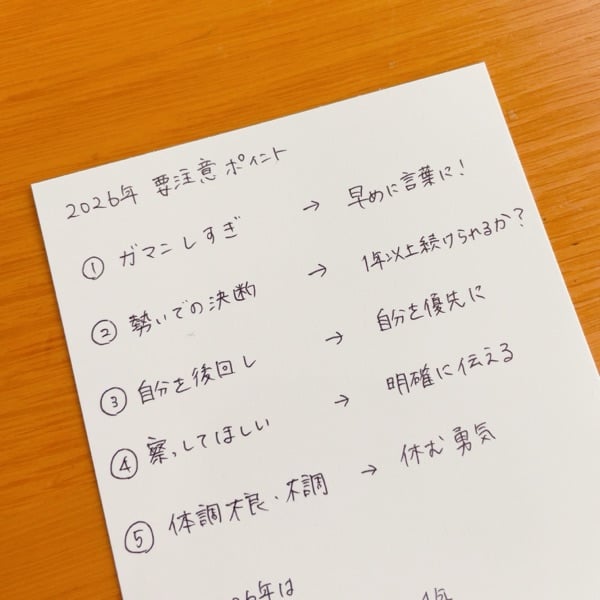 2026年 要注意 ポイント
① ガマンしすぎ → 早めに言葉に！
② 勢いでの決断 → 1年以上続けられるか？
③ 自分を後回し → 自分を優先に
④ 察してほしい → 明確に伝える
⑤ 体調不良・不調 → 休む勇気
26年は